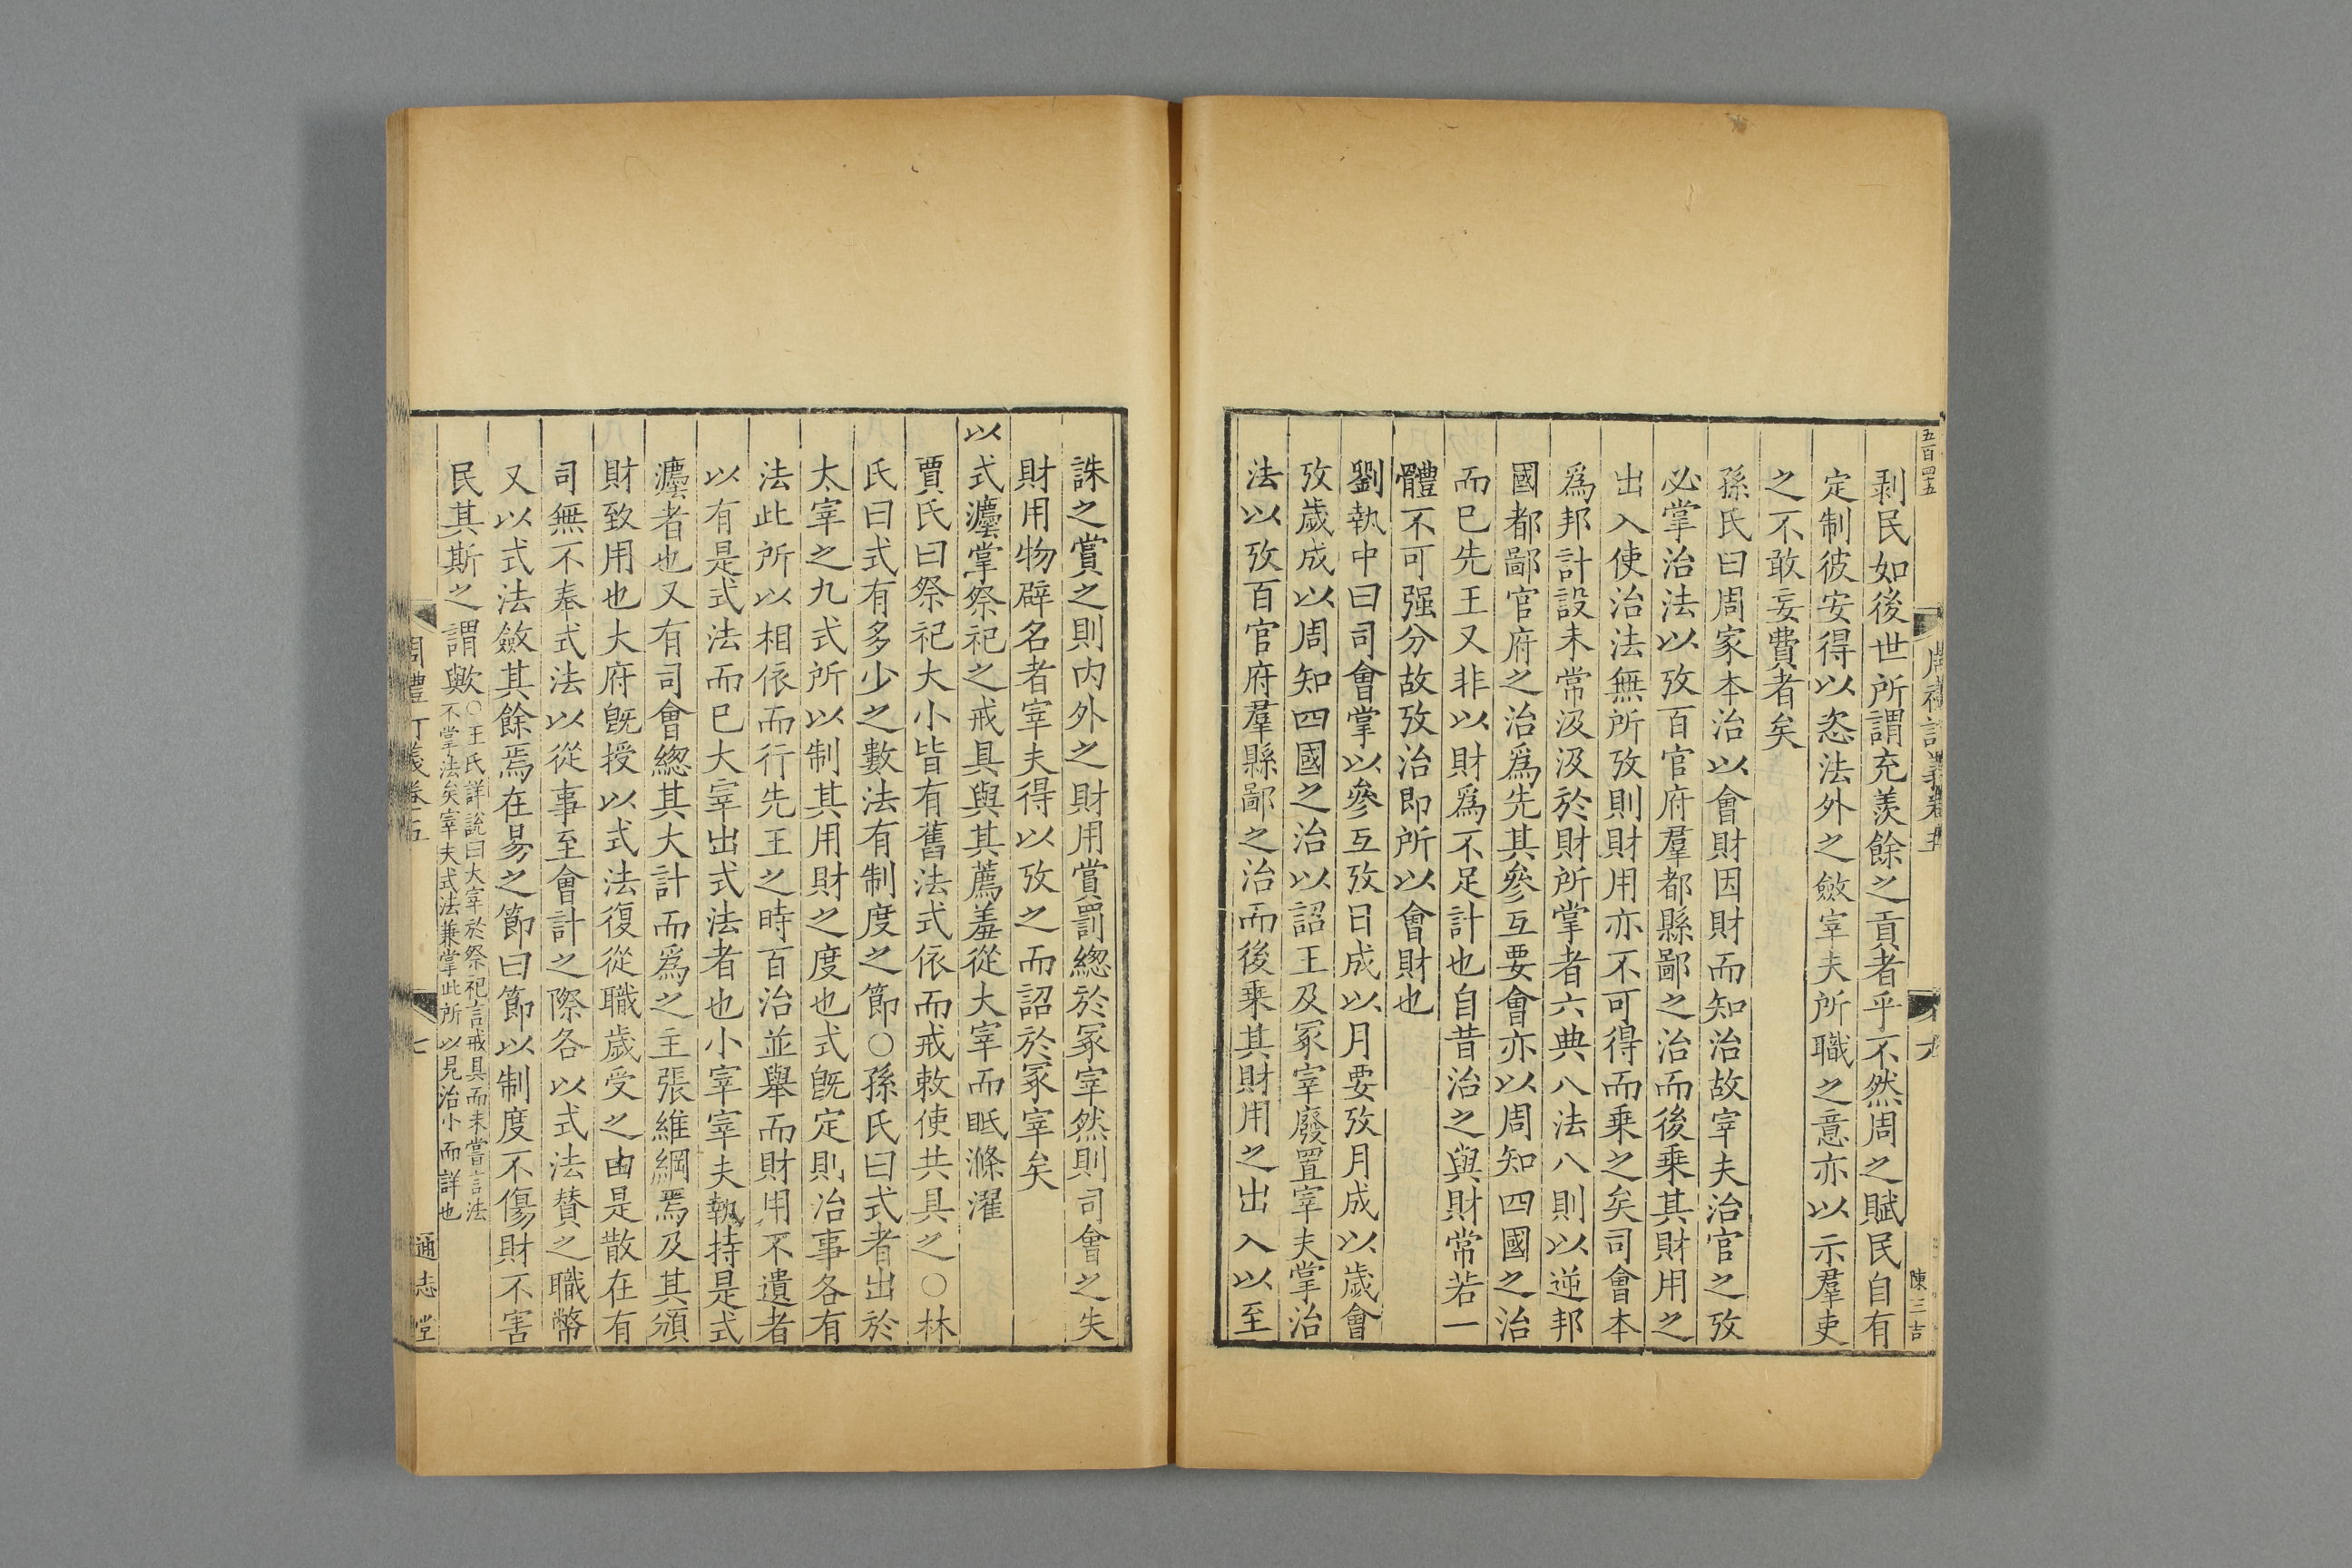 五百四十五
周禮訂義卷五
陳三吉
剥民如後世所謂充羨餘之貢者乎不然周之賦民自有
定制彼安得以恣法外之斂宰夫所職之意亦以示羣吏
之不敢妄費者矣
孫氏曰周家本治以會財因財而知治故宰夫治官之攷
必掌治法以攷百官府羣都縣鄙之治而後乗其財用之
出入使治法無所攷則財用亦不可得而乗之矣司會本
爲邦計設未常汲汲於財所掌者六典八法八則以逆邦
國都鄙官府之治爲先其參互要會亦以周知四國之治
而已先王又非以財爲不足計也自昔治之與財常若一
體不可强分故攷治即所以會財也
劉執中曰司會掌以參互攷日成以月要攷月成以歲會
攷歲成以周知四國之治以詔王及冢宰廢置宰夫掌治
法以攷百官府羣縣鄙之治而後乗其財用之出入以至
誅之賞之則内外之財用賞罰緫於冢宰然則司會之失
財用物辟名者宰夫得以攷之而詔於冢宰矣
以式灋掌祭祀之戒具與其薦羞從大宰而眡滌濯
賈氏曰祭祀大小皆有舊法式依而戒敕使共具之○林
氏曰式有多少之數法有制度之節○孫氏曰式者出於
太宰之九式所以制其用財之度也式旣定則治事各有
法此所以相依而行先王之時百治並舉而財用不遺者
以有是式法而已大宰出式法者也小宰宰夫執持是式
灋者也又有司會緫其大計而爲之主張維綱焉及其頒
財致用也大府旣授以式法復從職歲受之由是散在有
司無不奉式法以從事至會計之際各以式法賛之職幣
又以式法斂其餘焉在易之節曰節以制度不傷財不害
民其斯之謂歟○王氏詳說曰大宰於祭祀言戒具而未嘗言法
不掌法矣宰夫式法兼掌此所以見治小而詳也
周禮訂義卷五
七
通志堂